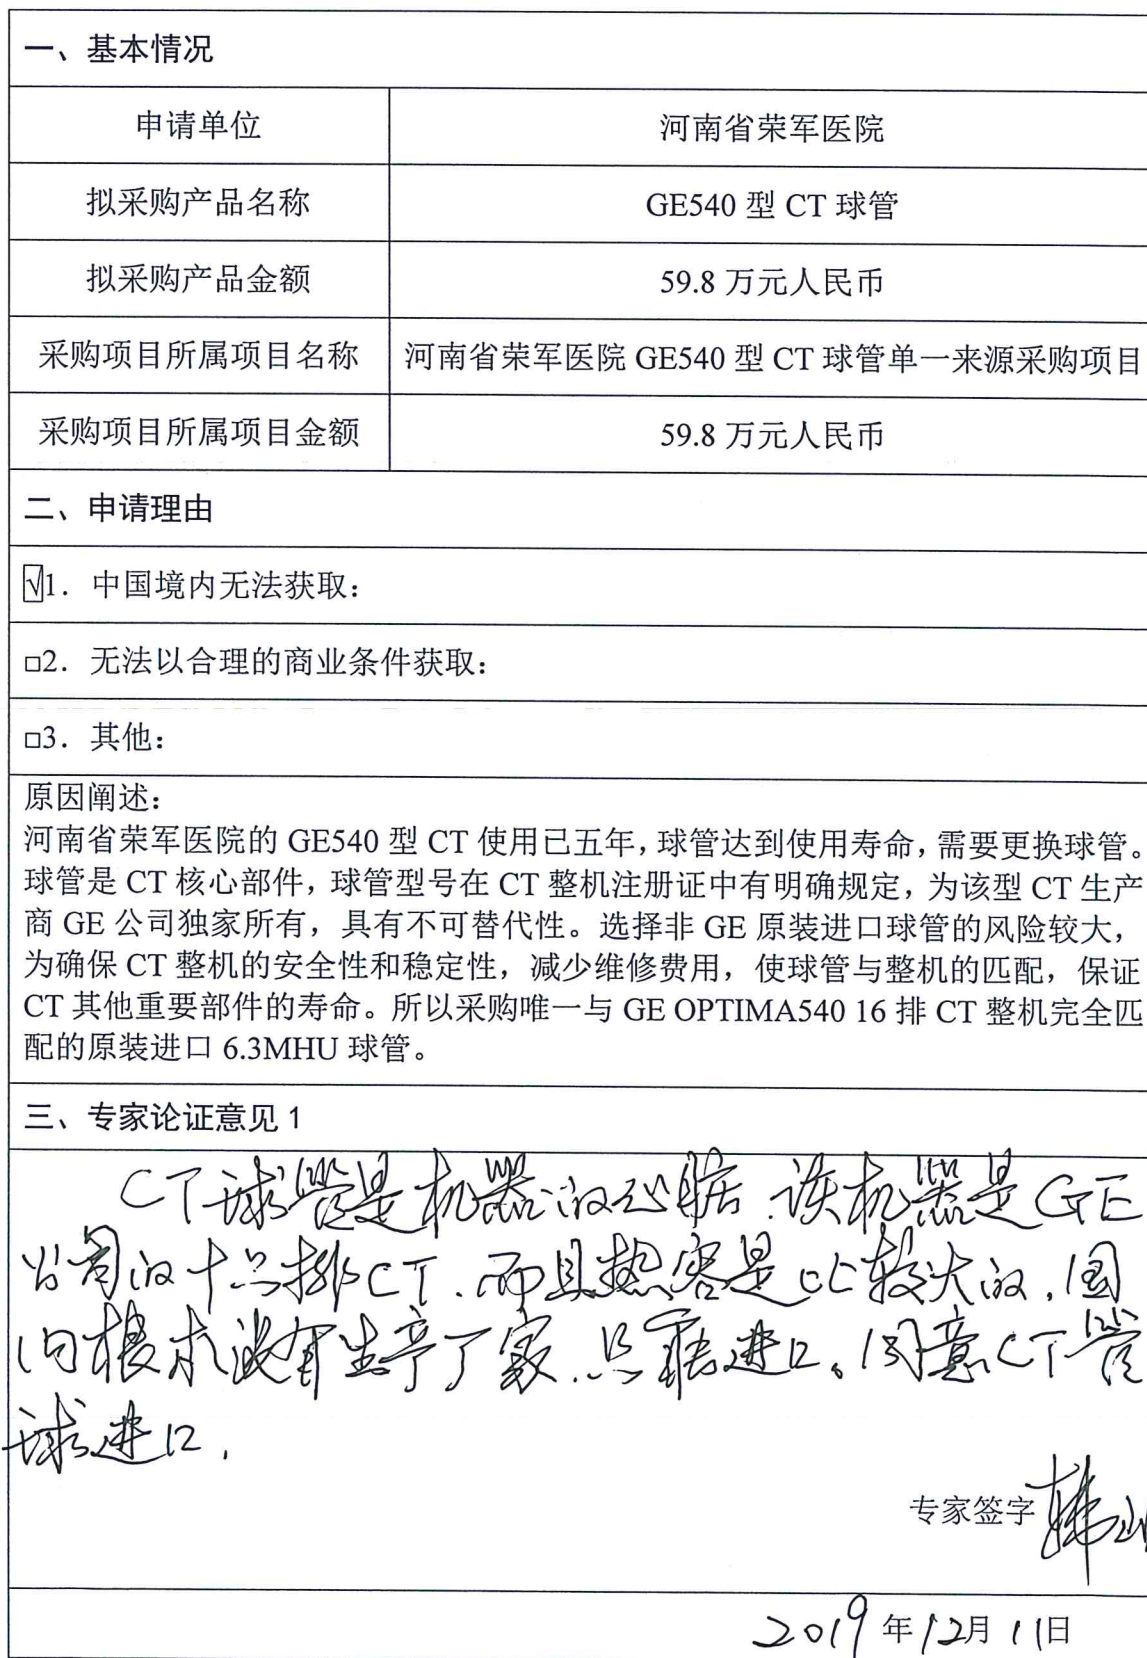 一、基本情况
申请单位 河南省荣军医院
拟采购产品名称 GE540 型 CT 球管
拟采购产品金额 59.8 万元人民币
采购项目所属项目名称 河南省荣军医院 GE540 型 CT 球管单一来源采购项目
采购项目所属项目金额 59.8 万元人民币
二、申请理由
☑1. 中国境内无法获取：
□2. 无法以合理的商业条件获取：
□3. 其他：
原因阐述：
河南省荣军医院的 GE540 型 CT 使用已五年，球管达到使用寿命，需要更换球管。
球管是 CT 核心部件，球管型号在 CT 整机注册证中有明确规定，为该型 CT 生产
商 GE 公司独家所有，具有不可替代性。选择非 GE 原装进口球管的风险较大，
为确保 CT 整机的安全性和稳定性，减少维修费用，使球管与整机的匹配，保证
CT 其他重要部件的寿命。所以采购唯一与 GE OPTIMA540 16 排 CT 整机完全匹
配的原装进口 6.3MHU 球管。
三、专家论证意见 1
CT球管是机器的心脏.该机器是GE
公司的十六排CT.而且热容是比较大的,国
内根本没有生产厂家.只能进口。同意CT管
球进口.
专家签字 韩
2019年12月11日